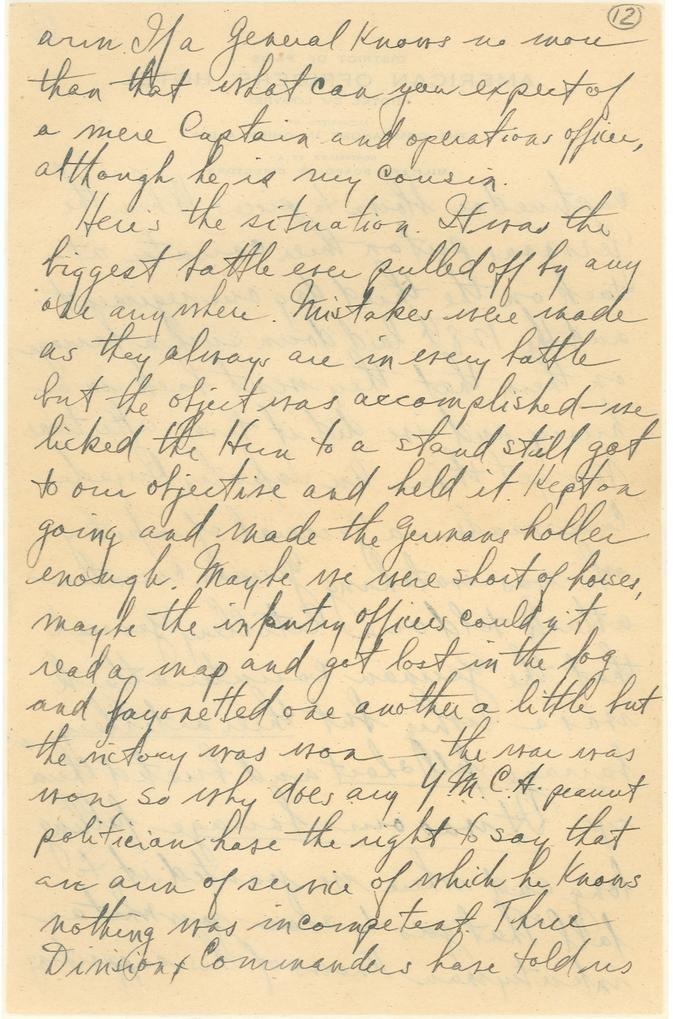 12
arm. If a General Knows no more
than that what can you expect of
a mere Captain and operations officer,
although he is my cousin.
Here's the situation. It was the
biggest battle ever pulled off by any
one anywhere. Mistakes were made
as they always are in every battle
but the object was accomplished - we
licked the Hun to a stand still got
to our objective and held it. Kept on
going and made the Germans holler
enough. Maybe we were short of horses,
maybe the infantry officers couldn't
read a map and get lost in the fog
and bayonetted one another a little but
the victory was won - the war was
won so why does any Y.M.C.A. peanut
politician have the right to say that
an arm of service of which he Knows
nothing was incompetent. Three
Division Commanders have told us